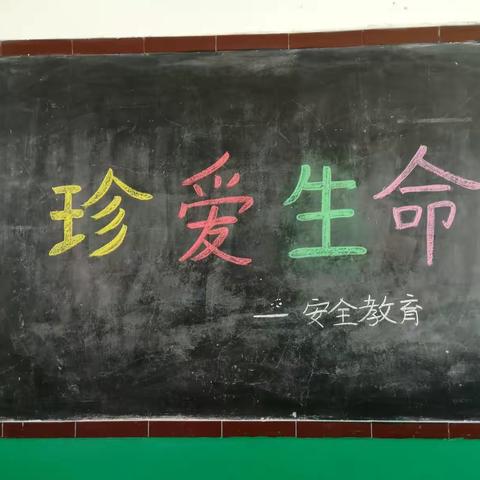 珍爱生命
—安全教育